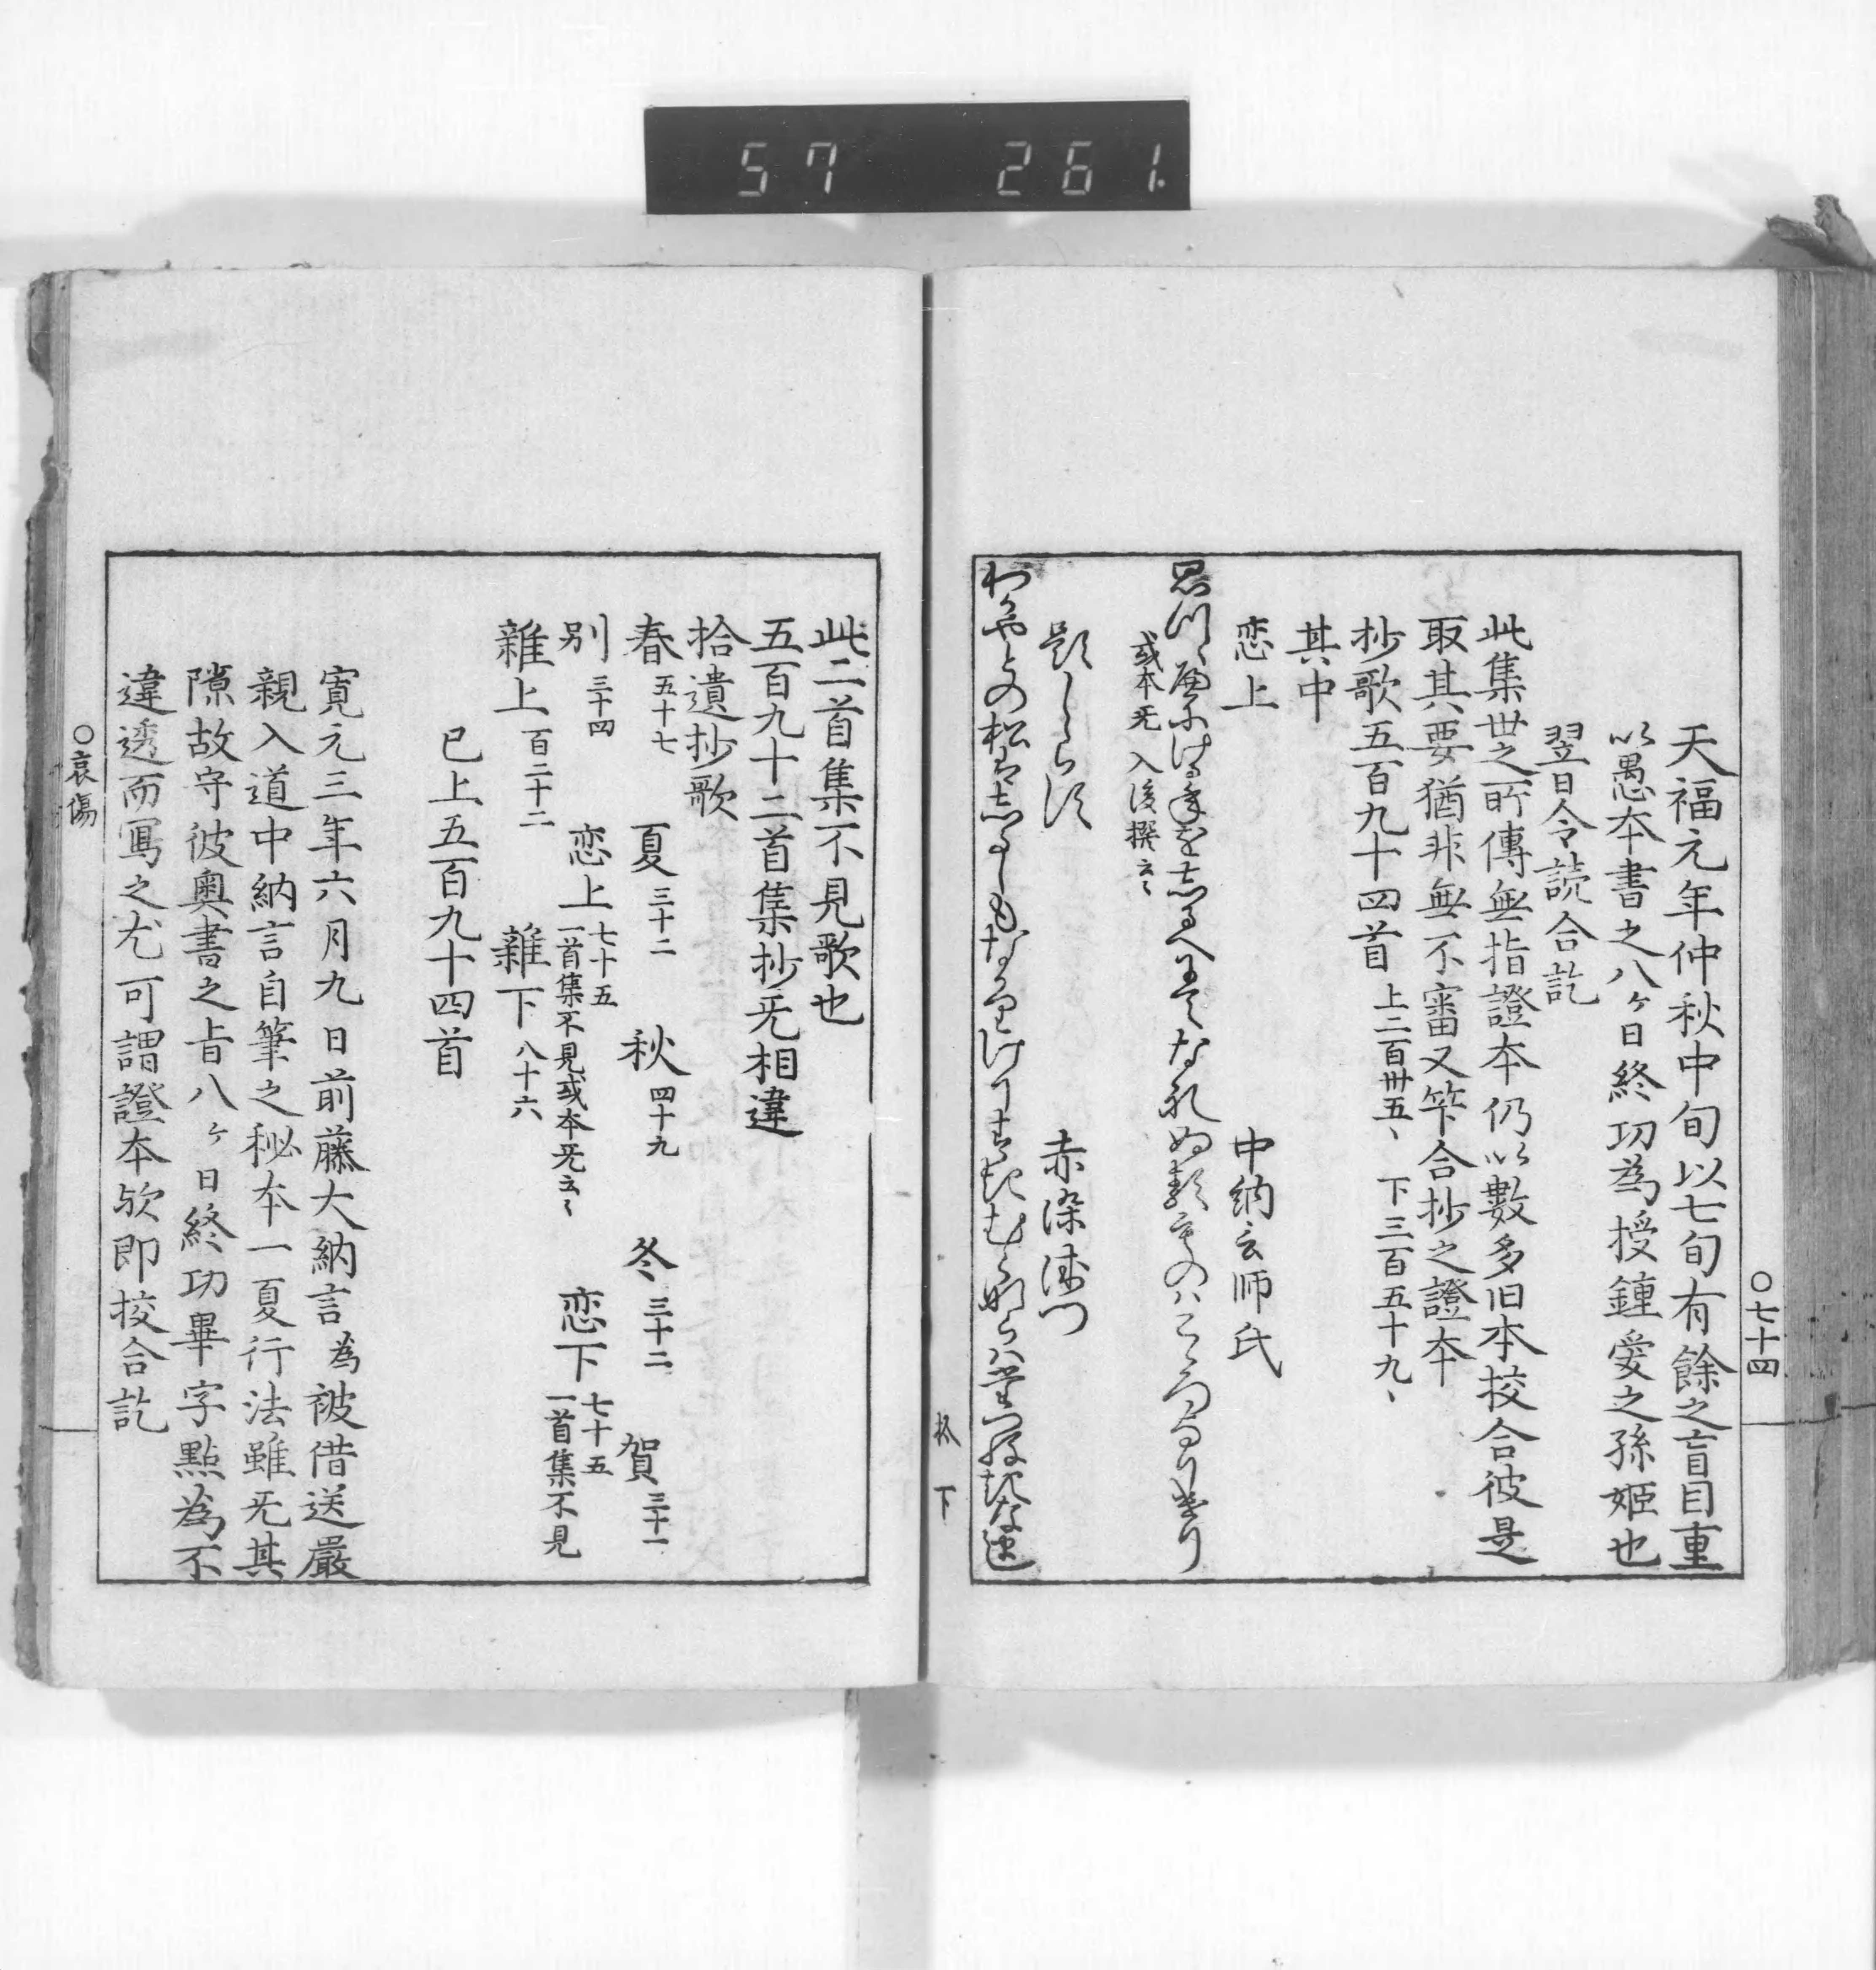 57 261.
〇七十四
天福元年仲秋中旬以七旬有餘之盲目重
以愚本書之八ケ日終功為授鍾愛之孫姫也
翌日令読合訖
此集世之所傳無指證本仍以數多旧本挍合彼是
取其要猶非無不審又笇合抄之證本
抄歌五百九十四首 上二百卅五、 下三百五十九、
其中
恋上 中納言師氏
或本无 入後撰云〻
題しらす 赤染衛門
わかやとの松はしるしもなかりけり
拾 下
此二首集不見歌也
五百九十二首集抄无相違
拾遺抄歌
春 五十七 夏 三十二 秋 四十九 冬 三十二 賀 三十一
別 三十四 恋上 七十五 一首集不見或本无云〻 恋下 七十五 一首集不見
雜上 百二十二 雜下 八十六
已上五百九十四首
寛元三年六月九日前藤大納言為被借送嚴
親入道中納言自筆之秘本一夏行法雖无其
隙故守彼奥書之旨八ケ日終功畢字點為不
違透而寫之尤可謂證本欤即挍合訖
〇哀傷